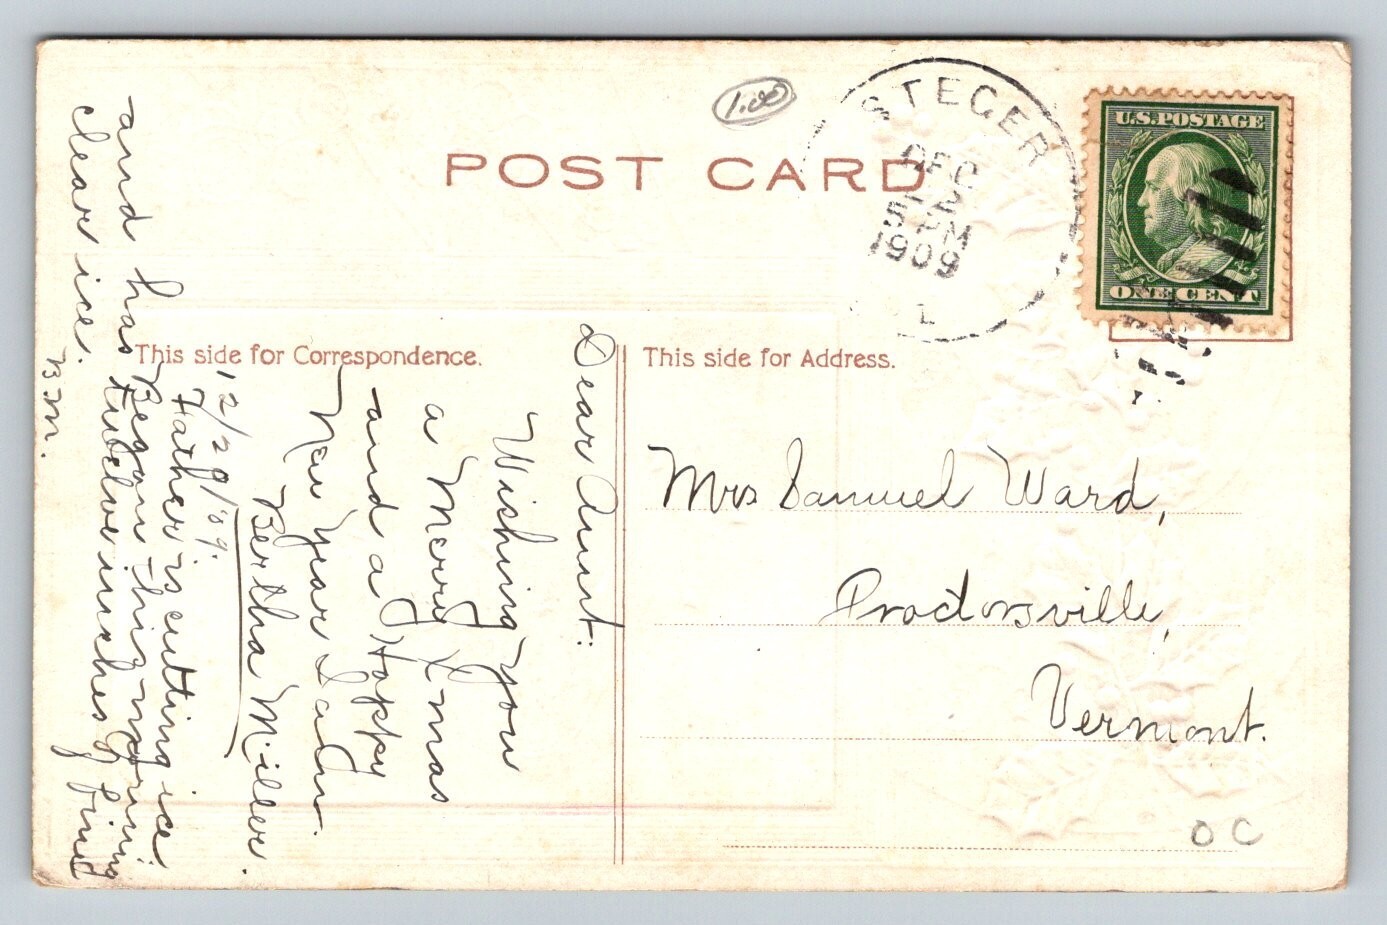 1.00
POST CARD
STEGER
DEC
22
5 PM
1909
L
U.S. POSTAGE
ONE CENT
This side for Correspondence.
This side for Address.
Dear Aunt:
Wishing you
a Merry Xmas
and a Happy
New Year I am
Bertha Miller.
12/20/'09.
Father is cutting ice.
Began this morning
and has twelve inches of fine
clear ice.
B.M.
Mrs Samuel Ward,
Proctorsville,
Vermont.
O C